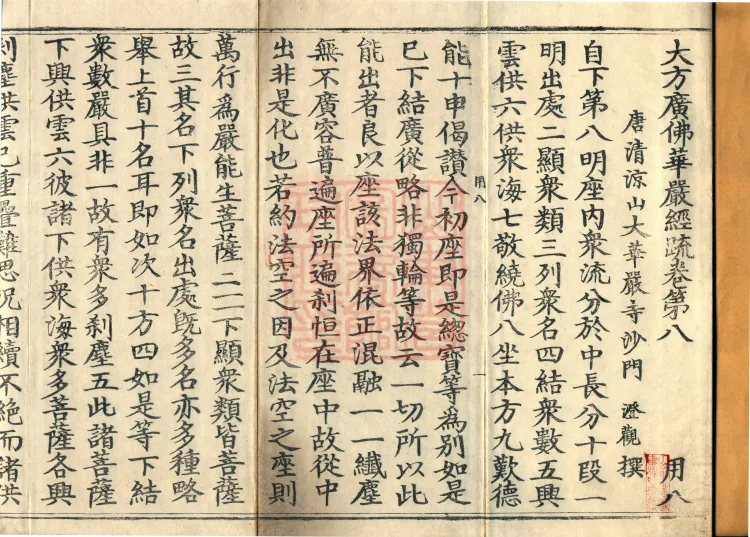 大方廣佛華嚴經疏卷第八 用八
唐清涼山大華嚴寺沙門 澄觀 撰
自下第八明座內衆流分於中長分十段一
明出處二顯衆類三列衆名四結衆數五興
雲供六供衆海七敬繞佛八坐本方九歎德
能十申偈讚今初座即是總寶等爲別如是
用八 一
已下結廣從略非獨輪等故云一切所以此
能出者良以座該法界依正混融一一纖塵
無不廣容普遍座所遍剎恒在座中故從中
出非是化也若約法空之因及法空之座則
萬行爲嚴能生菩薩二二下顯衆類皆菩薩
故三其名下列衆名出處旣多名亦多種略
舉上首十名耳即如次十方四如是等下結
衆數嚴具非一故有衆多剎塵五此諸菩薩
下興供雲六彼諸下供衆海衆多菩薩各興
剎塵供雲已重疊難思況相續不絕而諸供